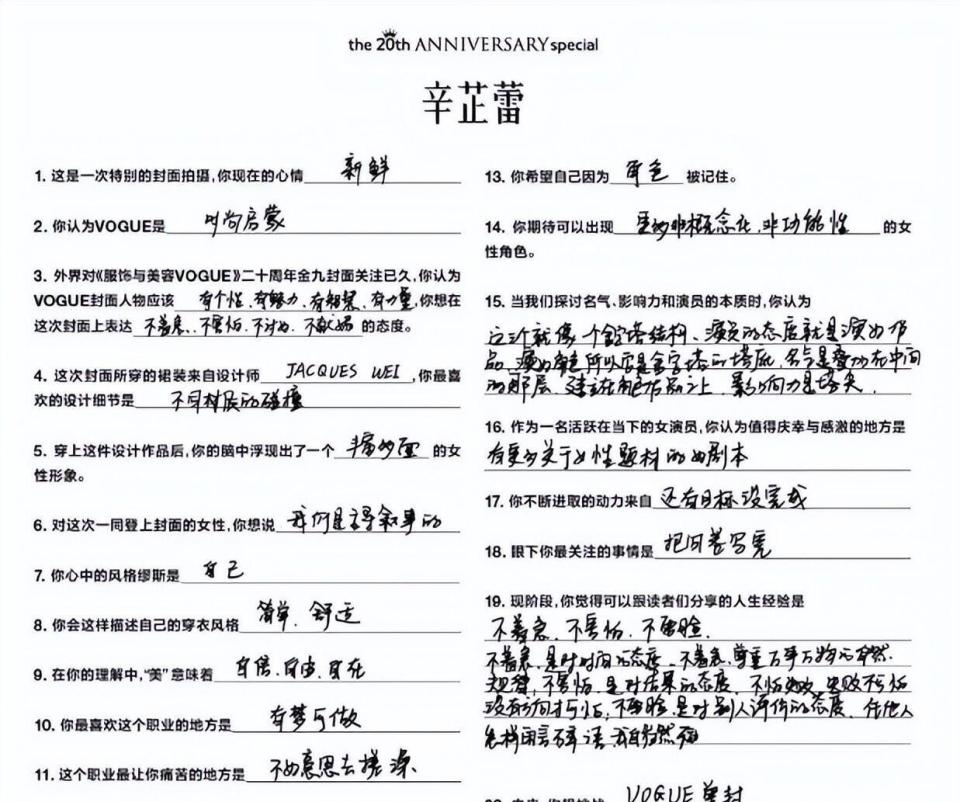 the 20th ANNIVERSARY special
辛芷蕾
1. 这是一次特别的封面拍摄,你现在的心情 新鲜
2. 你认为VOGUE是 时尚启蒙
3. 外界对《服饰与美容VOGUE》二十周年金九封面关注已久,你认为
VOGUE封面人物应该 有个性、有魅力、有智慧、有力量,你想在
这次封面上表达 不着急、不害怕、不讨好、不献媚 的态度。
4. 这次封面所穿的裙装来自设计师 JACQUES WEI ,你最喜
欢的设计细节是 不同材质的碰撞
5. 穿上这件设计作品后,你的脑中浮现出了一个 丰富多面 的女
性形象。
6. 对这次一同登上封面的女性,你想说 我们是主导叙事的
7. 你心中的风格缪斯是 自己
8. 你会这样描述自己的穿衣风格 简单、舒适
9. 在你的理解中,“美”意味着 自信、自由、自在
10. 你最喜欢这个职业的地方是 有梦可做
11. 这个职业最让你痛苦的地方是 不好意思去搓澡
13. 你希望自己因为 角色 被记住。
14. 你期待可以出现 更多非概念化、非功能性 的女
性角色。
15. 当我们探讨名气、影响力和演员的本质时,你认为
这三个就像一个金字塔结构、演员的态度就是演好作
品、演好角色所以它是金字塔的塔底,名气是叠加在中间
的那层,建立在作品之上,影响力是塔尖.
16. 作为一名活跃在当下的女演员,你认为值得庆幸与感激的地方是
有更多关于女性题材的好剧本
17. 你不断进取的动力来自 还有目标没完成
18. 眼下你最关注的事情是 把问卷写完
19. 现阶段,你觉得可以跟读者们分享的人生经验是
不着急、不害怕、不要脸.
不着急,是对时间的态度,不着急,尊重万事万物的自然
规律,不害怕,是对结果的态度,不怕失败,失败不可怕
没有方向才可怕,不要脸,是对别人评价的态度,任他人
怎样闲言碎语,我自岿然不动
VOGUE单封